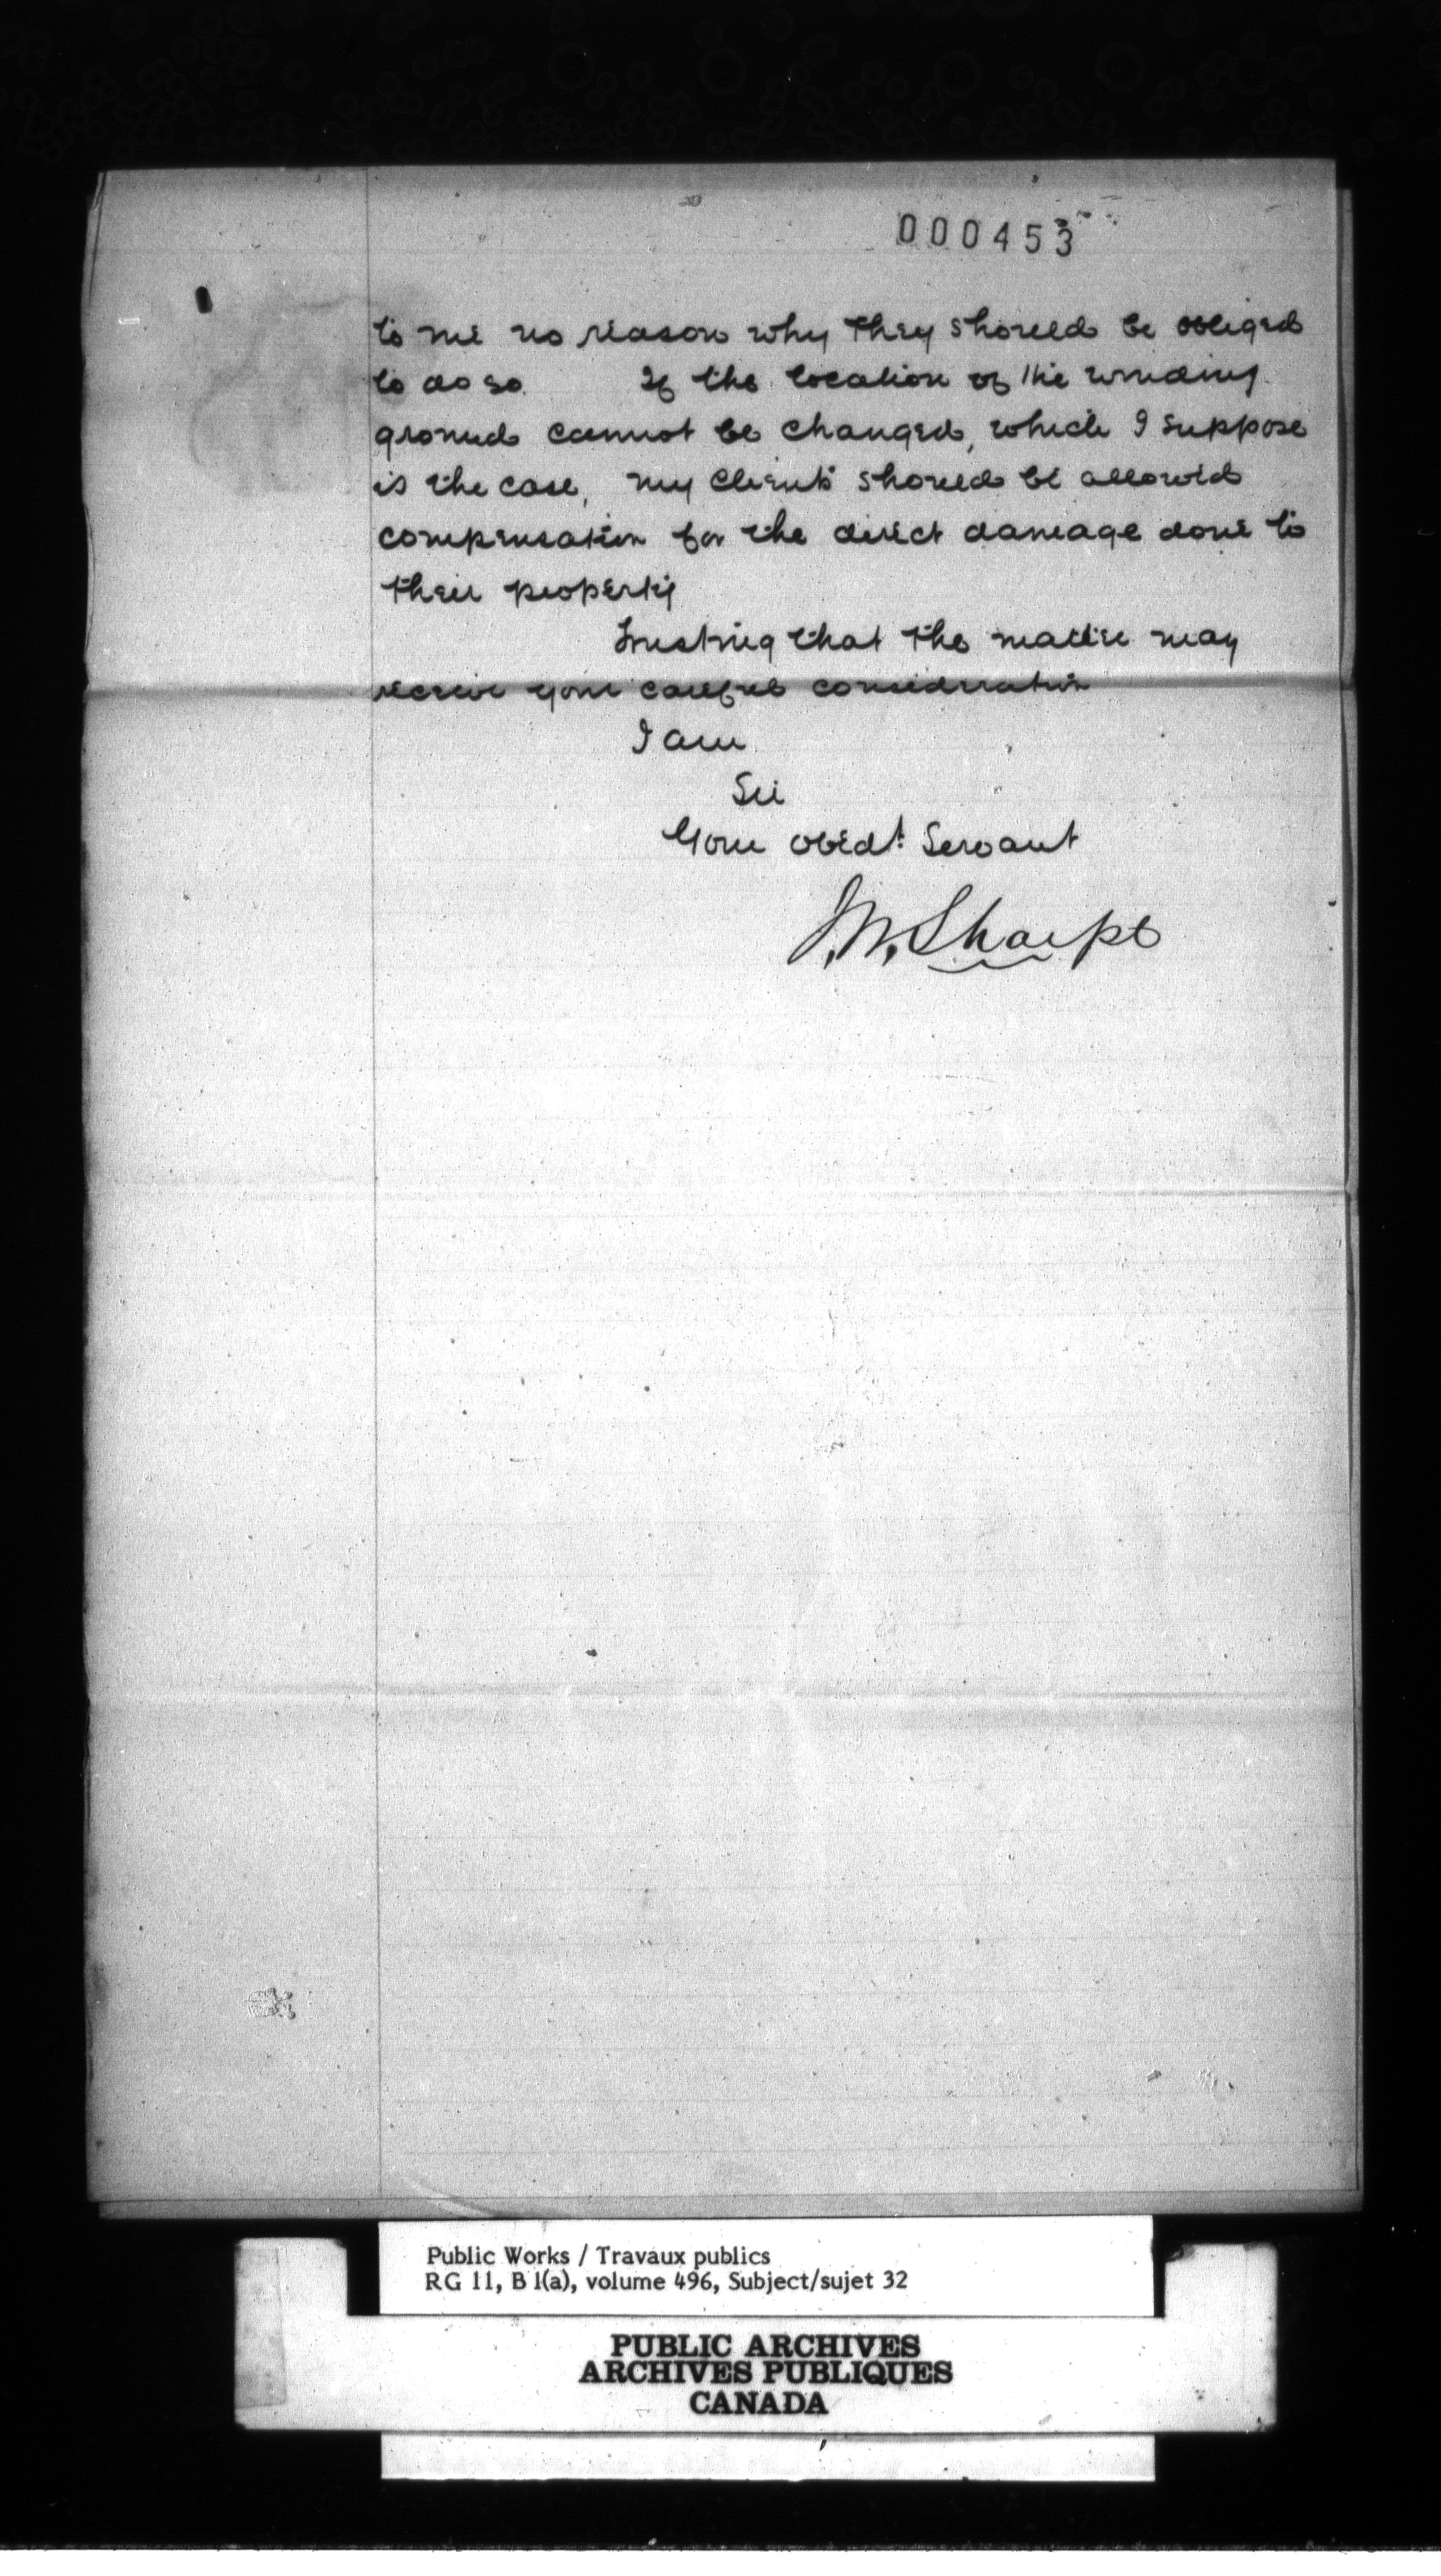 000453
to me no reason why they should be obliged
to do so. If the location of the winding
ground cannot be changed, which I suppose
is the case, my clients should be allowed
compensation for the direct damage done to
their property
Trusting that the matter may
receive your careful consideration
I am
Sir
Your obedt. Servant
J. M. Sharpe
Public Works / Travaux publics
RG 11, B 1(a), volume 496, Subject/sujet 32
PUBLIC ARCHIVES
ARCHIVES PUBLIQUES
CANADA